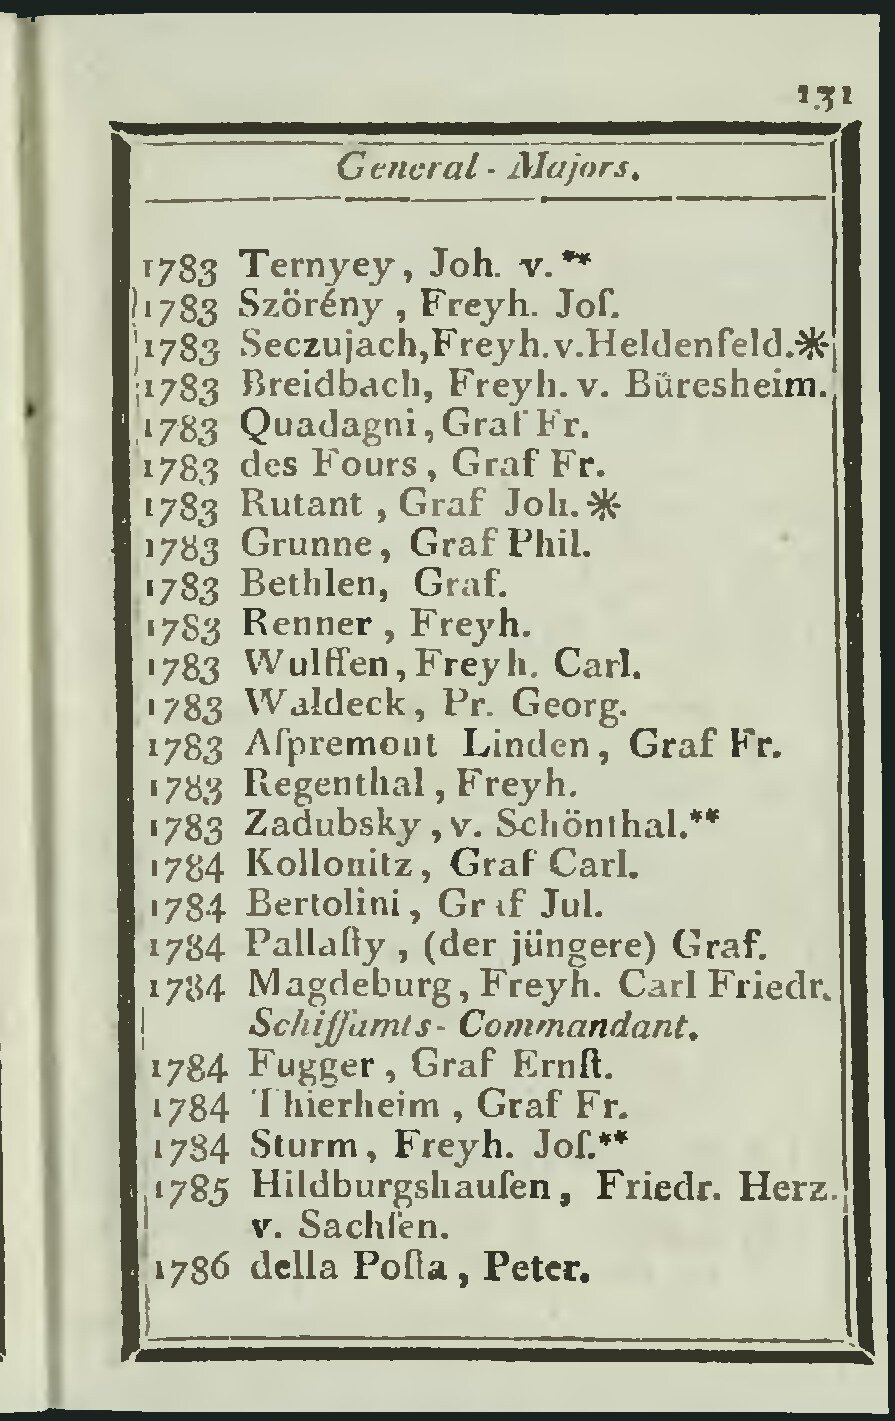 131
General-Majors.
1783 Ternyey, Joh. v.**
1783 Szörény, Freyh. Joſ.
1783 Seczujach, Freyh. v. Heldenfeld.*
1783 Breidbach, Freyh. v. Büresheim.
1783 Quadagni, Graf Fr.
1783 des Fours, Graf Fr.
1783 Rutant, Graf Joh.*
1783 Grunne, Graf Phil.
1783 Bethlen, Graf.
1783 Renner, Freyh.
1783 Wulffen, Freyh. Carl.
1783 Waldeck, Pr. Georg.
1783 Aſpremont Linden, Graf Fr.
1783 Regenthal, Freyh.
1783 Zadubsky, v. Schönthal.**
1784 Kollonitz, Graf Carl.
1784 Bertolini, Graf Jul.
1784 Pallaſty, (der jüngere) Graf.
1784 Magdeburg, Freyh. Carl Friedr.
Schiffamts-Commandant.
1784 Fugger, Graf Ernſt.
1784 Thierheim, Graf Fr.
1784 Sturm, Freyh. Joſ.**
1785 Hildburgshauſen, Friedr. Herz.
v. Sachſen.
1786 della Poſta, Peter.